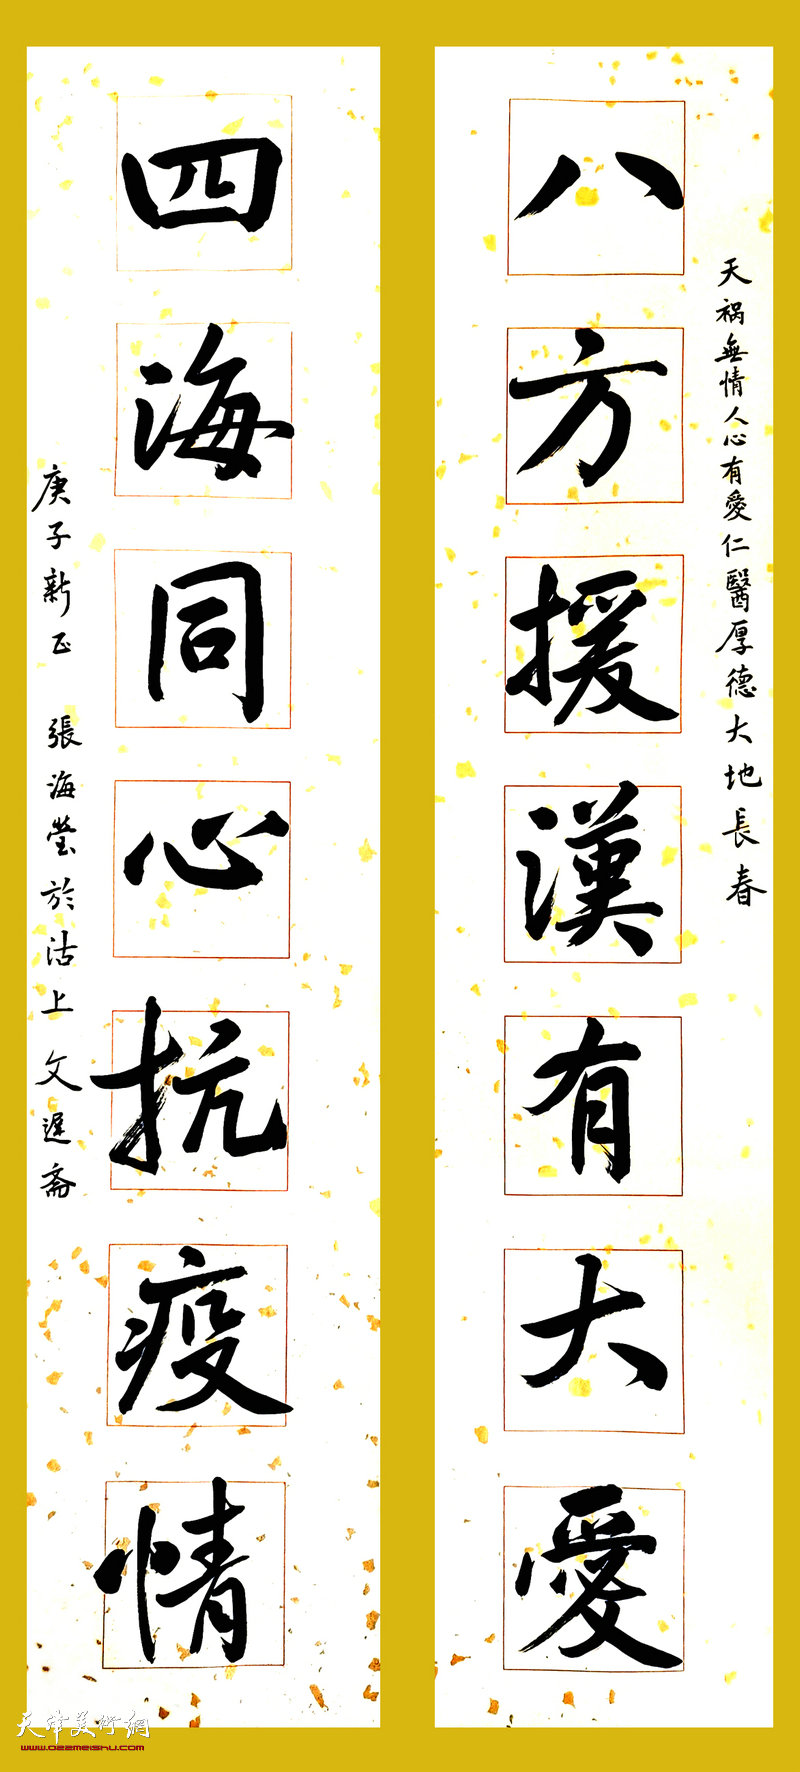 天祸無情人心有愛仁醫厚德大地長春
八方援漢有大愛
四海同心抗疫情
庚子新正 張海瑩於沽上文遲斋
天津美術網
www.022meishu.com